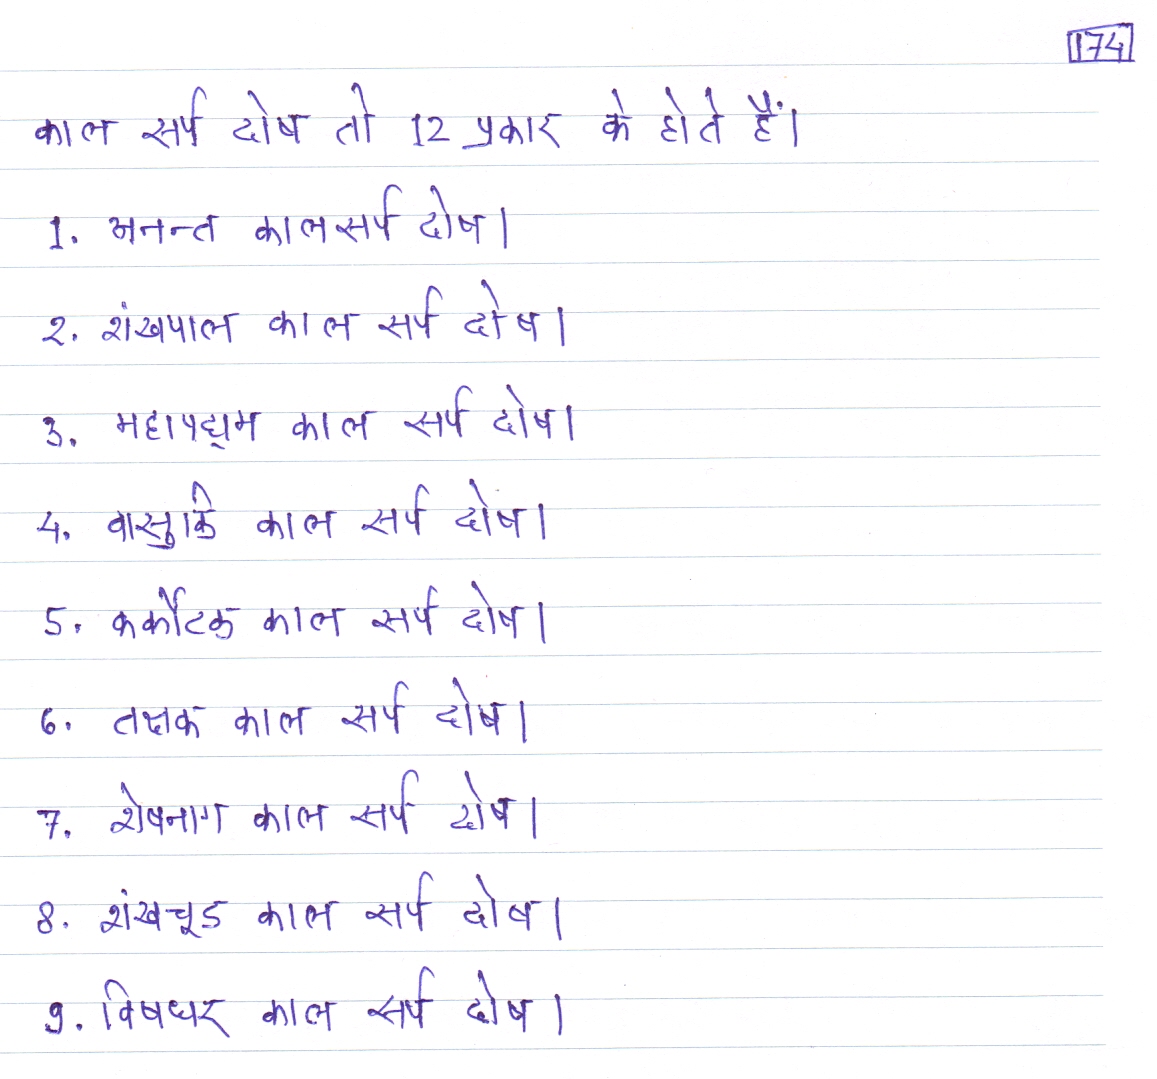 174
काल सर्प दोष तो 12 प्रकार के होते हैं।
1. अनन्त कालसर्प दोष।
2. शंखपाल काल सर्प दोष।
3. महापद्म काल सर्प दोष।
4. वासुकि काल सर्प दोष।
5. कर्कोटक काल सर्प दोष।
6. तक्षक काल सर्प दोष।
7. शेषनाग काल सर्प दोष।
8. शंखचूड काल सर्प दोष।
9. विषधर काल सर्प दोष।